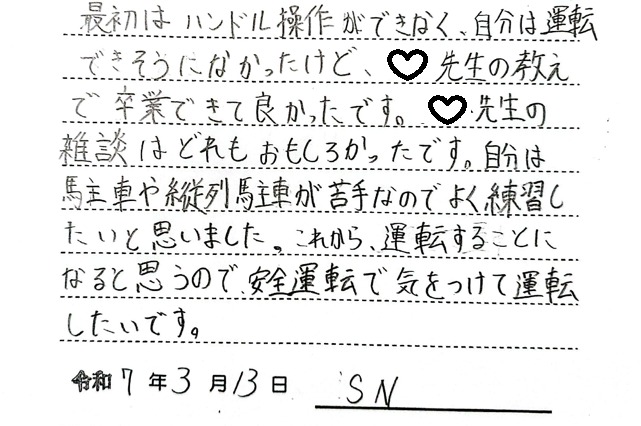 最初はハンドル操作ができなく、自分は運転
できそうになかったけど、♡先生の教え
で卒業できて良かったです。♡先生の
雑談はどれもおもしろかったです。自分は
駐車や縦列駐車が苦手なのでよく練習し
たいと思いました。これから、運転することに
なると思うので、安全運転で気をつけて運転
したいです。
令和7年3月13日 SN